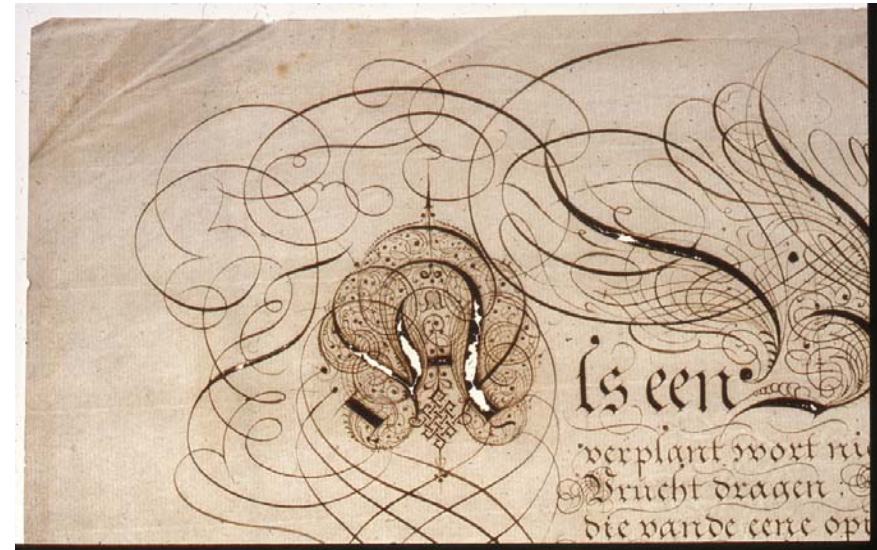 Als een
verplant wort nie
Vrucht dragen:
die vande eene op